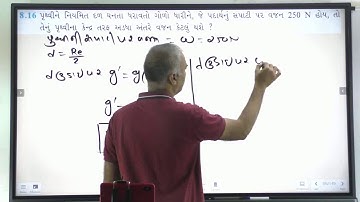 8.16 પૃથ્વીને નિયમિત દળ ઘનતા ધરાવતો ગોળો ધારીને, જે પદાર્થનું સપાટી પર વજન 250 N હોય, તો
તેનું પૃથ્વીના કેન્દ્ર તરફ અડધા અંતરે વજન કેટલું થશે ?
પૃથ્વીની સપાટી પર વજન = ω = 250N
d = Re/2
d ઊંડાઈ પર g' = g(
d ઊંડાઈ પર
g' =